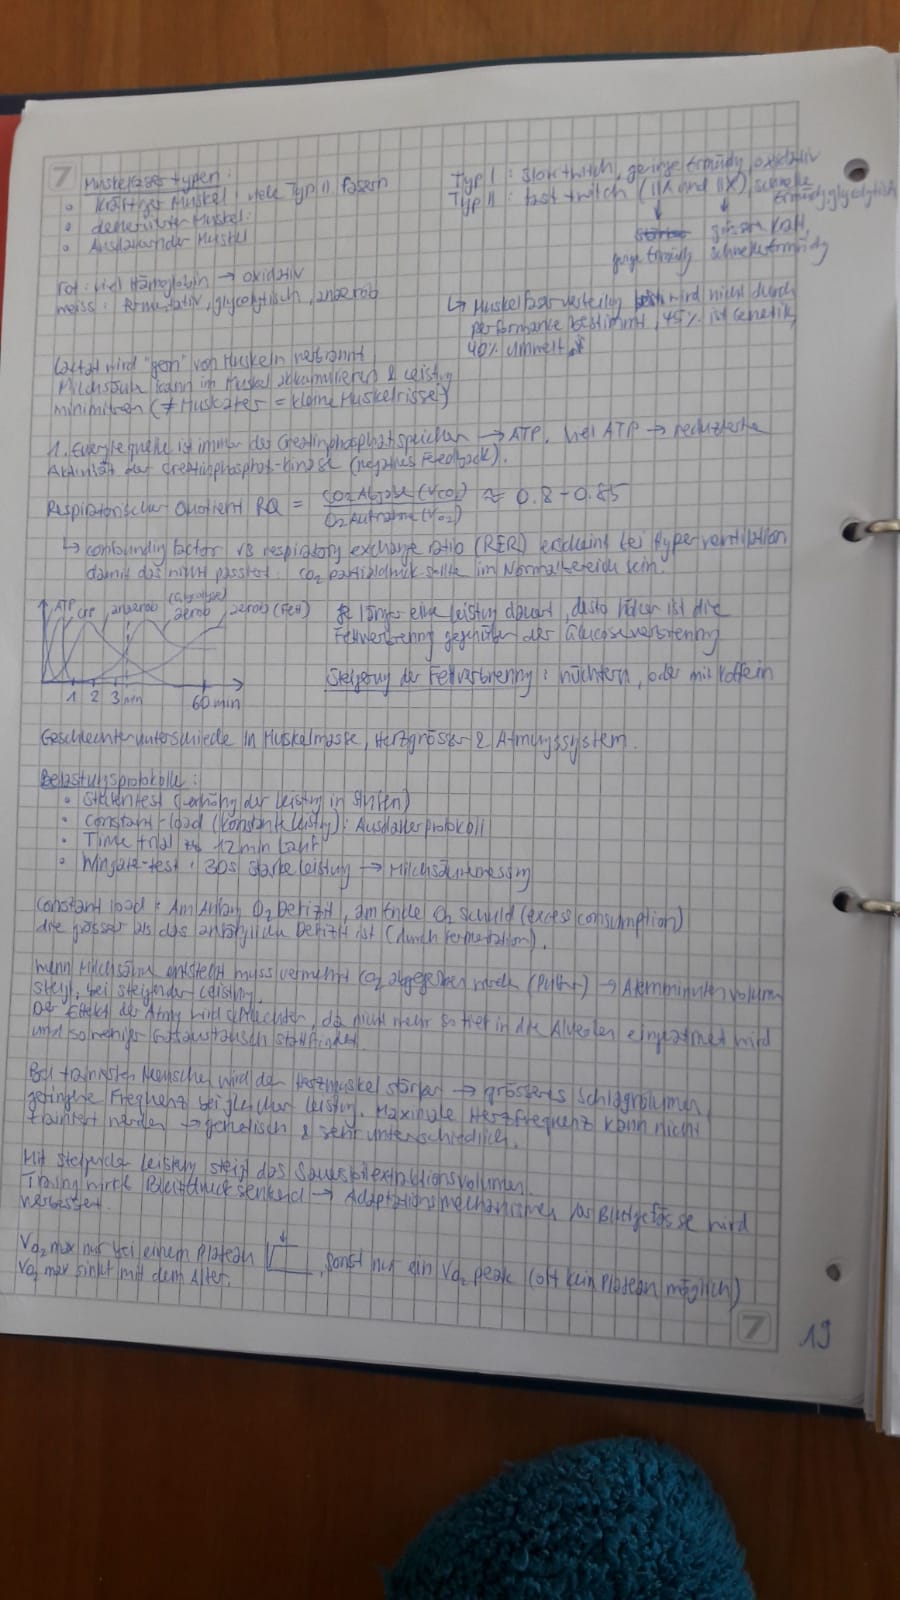 7
Muskelfasertypen:
• kräftiger Muskel: viele Typ II Fasern
• denervierter Muskel:
• Ausdauernder Muskel
Typ I: slow twitch, geringe Ermüdg, oxidativ
Typ II: fast twitch (IIA und IIX), schnelle
Ermüdg, glycolytisch
grossere Kraft,
geringe Ermüdg schnelle Ermüdg
rot: viel Hämoglobin → oxidativ
weiss: fermentativ, glycolytisch, anaerob
↳ Muskelfaserverteilg wird nicht durch
performance bestimmt, 45% ist Genetik,
40% Umwelt
Lactat wird "gern" von Muskeln verbrannt
Milchsäure kann im Muskel akkumulieren & Leistg
minimieren (≠ Muskelkater = kleine Muskelrisse)
1. Energiequelle ist immer der Creatinphosphatspeicher → ATP. Viel ATP → reduzierte
Aktivität der Creatinphosphat-Kinase (negatives Feedback).
Respiratorischer Quotient RQ = CO2 Abgabe (VCO2) / O2 Aufnahme (VO2) ≈ 0.8-0.85
↳ confounding factor VS respiratory exchange ratio (RER) erscheint bei Hyperventilation
damit das nicht passiert: CO2 partialdruck sollte im Normalbereich sein.
ATP, CrP, anaerob, aerob, aerob (Fett)
(Glycolyse)
1 2 3 min 60 min
Je länger eine Leistung dauert, desto höher ist die
Fettverbrenng gegenüber der Glucoseverbrenng
Steigerung der Fettverbrenng: nüchtern, oder mit Koffein
Geschlechterunterschiede in Muskelmasse, Herzgrösse & Atmungssystem.
Belastungsprotokolle:
• Stufentest (Erhöhg der Leistg in Stufen)
• Constant-load (konstante Leistg): Ausdauerprotokoll
• Time trial 12 min Lauf
• Wingate-test: 30s starke Leistung → Milchsäuremessung
Constant load: Am Anfang O2 Defizit, am Ende O2 Schuld (excess consumption)
die grösser als das anfänglich Defizit ist (durch Fermentation).
Wenn Milchsäure entsteht muss vermehrt CO2 abgegeben werden (Puffer) → Atemminutenvolumen
steigt bei steigender Leistung.
Der Effekt der Atmg wird schlechter, da nicht mehr so tief in die Alveolen eingeatmet wird
und so weniger Gasaustausch stattfindet.
Bei trainierten Menschen wird der Herzmuskel stärker → grösseres Schlagvolumen,
geringere Frequenz bei gleicher Leistg. Maximale Herzfrequenz kann nicht
trainiert werden → genetisch & sehr unterschiedlich.
Mit steigender Leistung steigt das Sauerstoffextraktionsvolumen.
Training wirkt Blutdruck senkend → Adaptationsmechanismen der Blutgefässe wird
verbessert.
VO2 max nur bei einem Plateau, sonst nur ein VO2 peak (oft kein Plateau möglich)
VO2 max sinkt mit dem Alter.
7
19